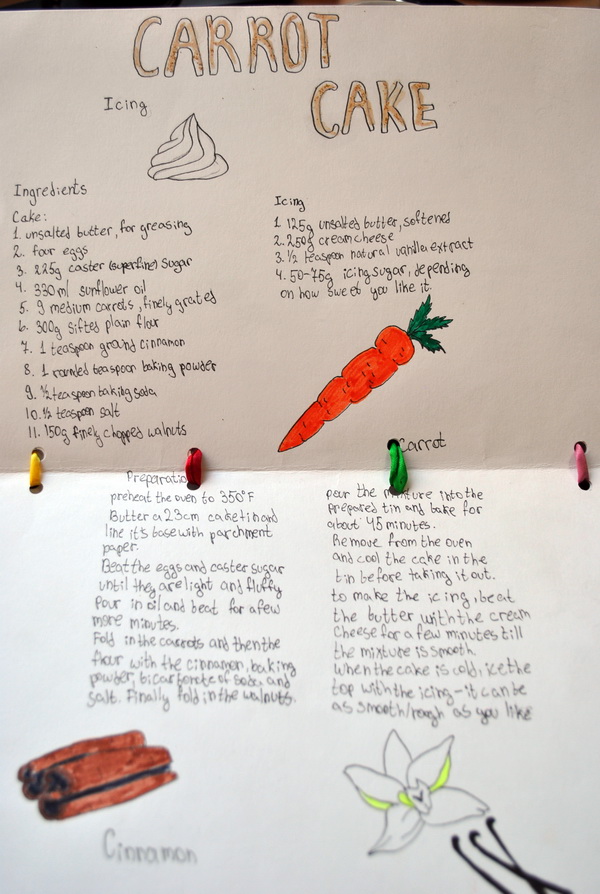 CARROT
CAKE
Icing
Ingredients
Cake:
1. unsalted butter, for greasing
2. four eggs
3. 225g caster (superfine) sugar
4. 330ml sunflower oil
5. 9 medium carrots, finely grated
6. 300g sifted plain flour
7. 1 teaspoon ground cinnamon
8. 1 rounded teaspoon baking powder
9. ½ teaspoon baking soda
10. ½ teaspoon salt
11. 150g finely chopped walnuts
Icing
1. 125g unsalted butter, softened
2. 250g cream cheese
3. ½ teaspoon natural vanilla extract
4. 50-75g icing sugar, depending
on how sweet you like it.
Carrot
Preparatio
preheat the oven to 350°F
Butter a 23cm cake tin and
line it's base with parchment
paper.
Beat the eggs and caster sugar
until they are light and fluffy
Pour in oil and beat for a few
more minutes.
Fold in the carrots and then the
flour with the cinnamon, baking
powder, bicarbonate of soda, and
salt. Finally fold in the walnuts.
pour the mixture into the
prepared tin and bake for
about 45 minutes.
Remove from the oven
and cool the cake in the
tin before taking it out.
to make the icing, beat
the butter with the cream
cheese for a few minutes till
the mixture is smooth.
when the cake is cold, ice the
top with the icing - it can be
as smooth/rough as you like
Cinnamon